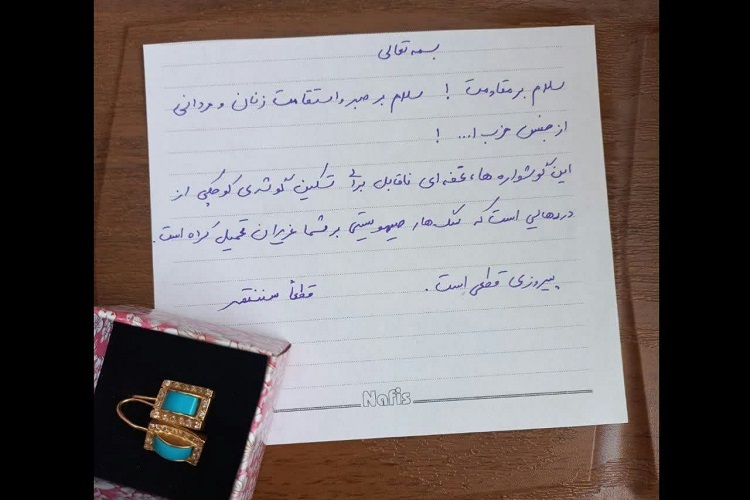 بسمه تعالی
سلام بر مقاومت ! سلام بر صبر و استقامت زنان و مردانی
از جنس حزب ا... !
این گوشواره ها، تحفه ای ناقابل برای تسکین گوشه ی کوچکی از
دردهایی است که سگ هار صهیونیستی بر شما عزیزان تحمیل کرده است.
پیروزی قطعی است. قطعاً سننتصر
Nafis